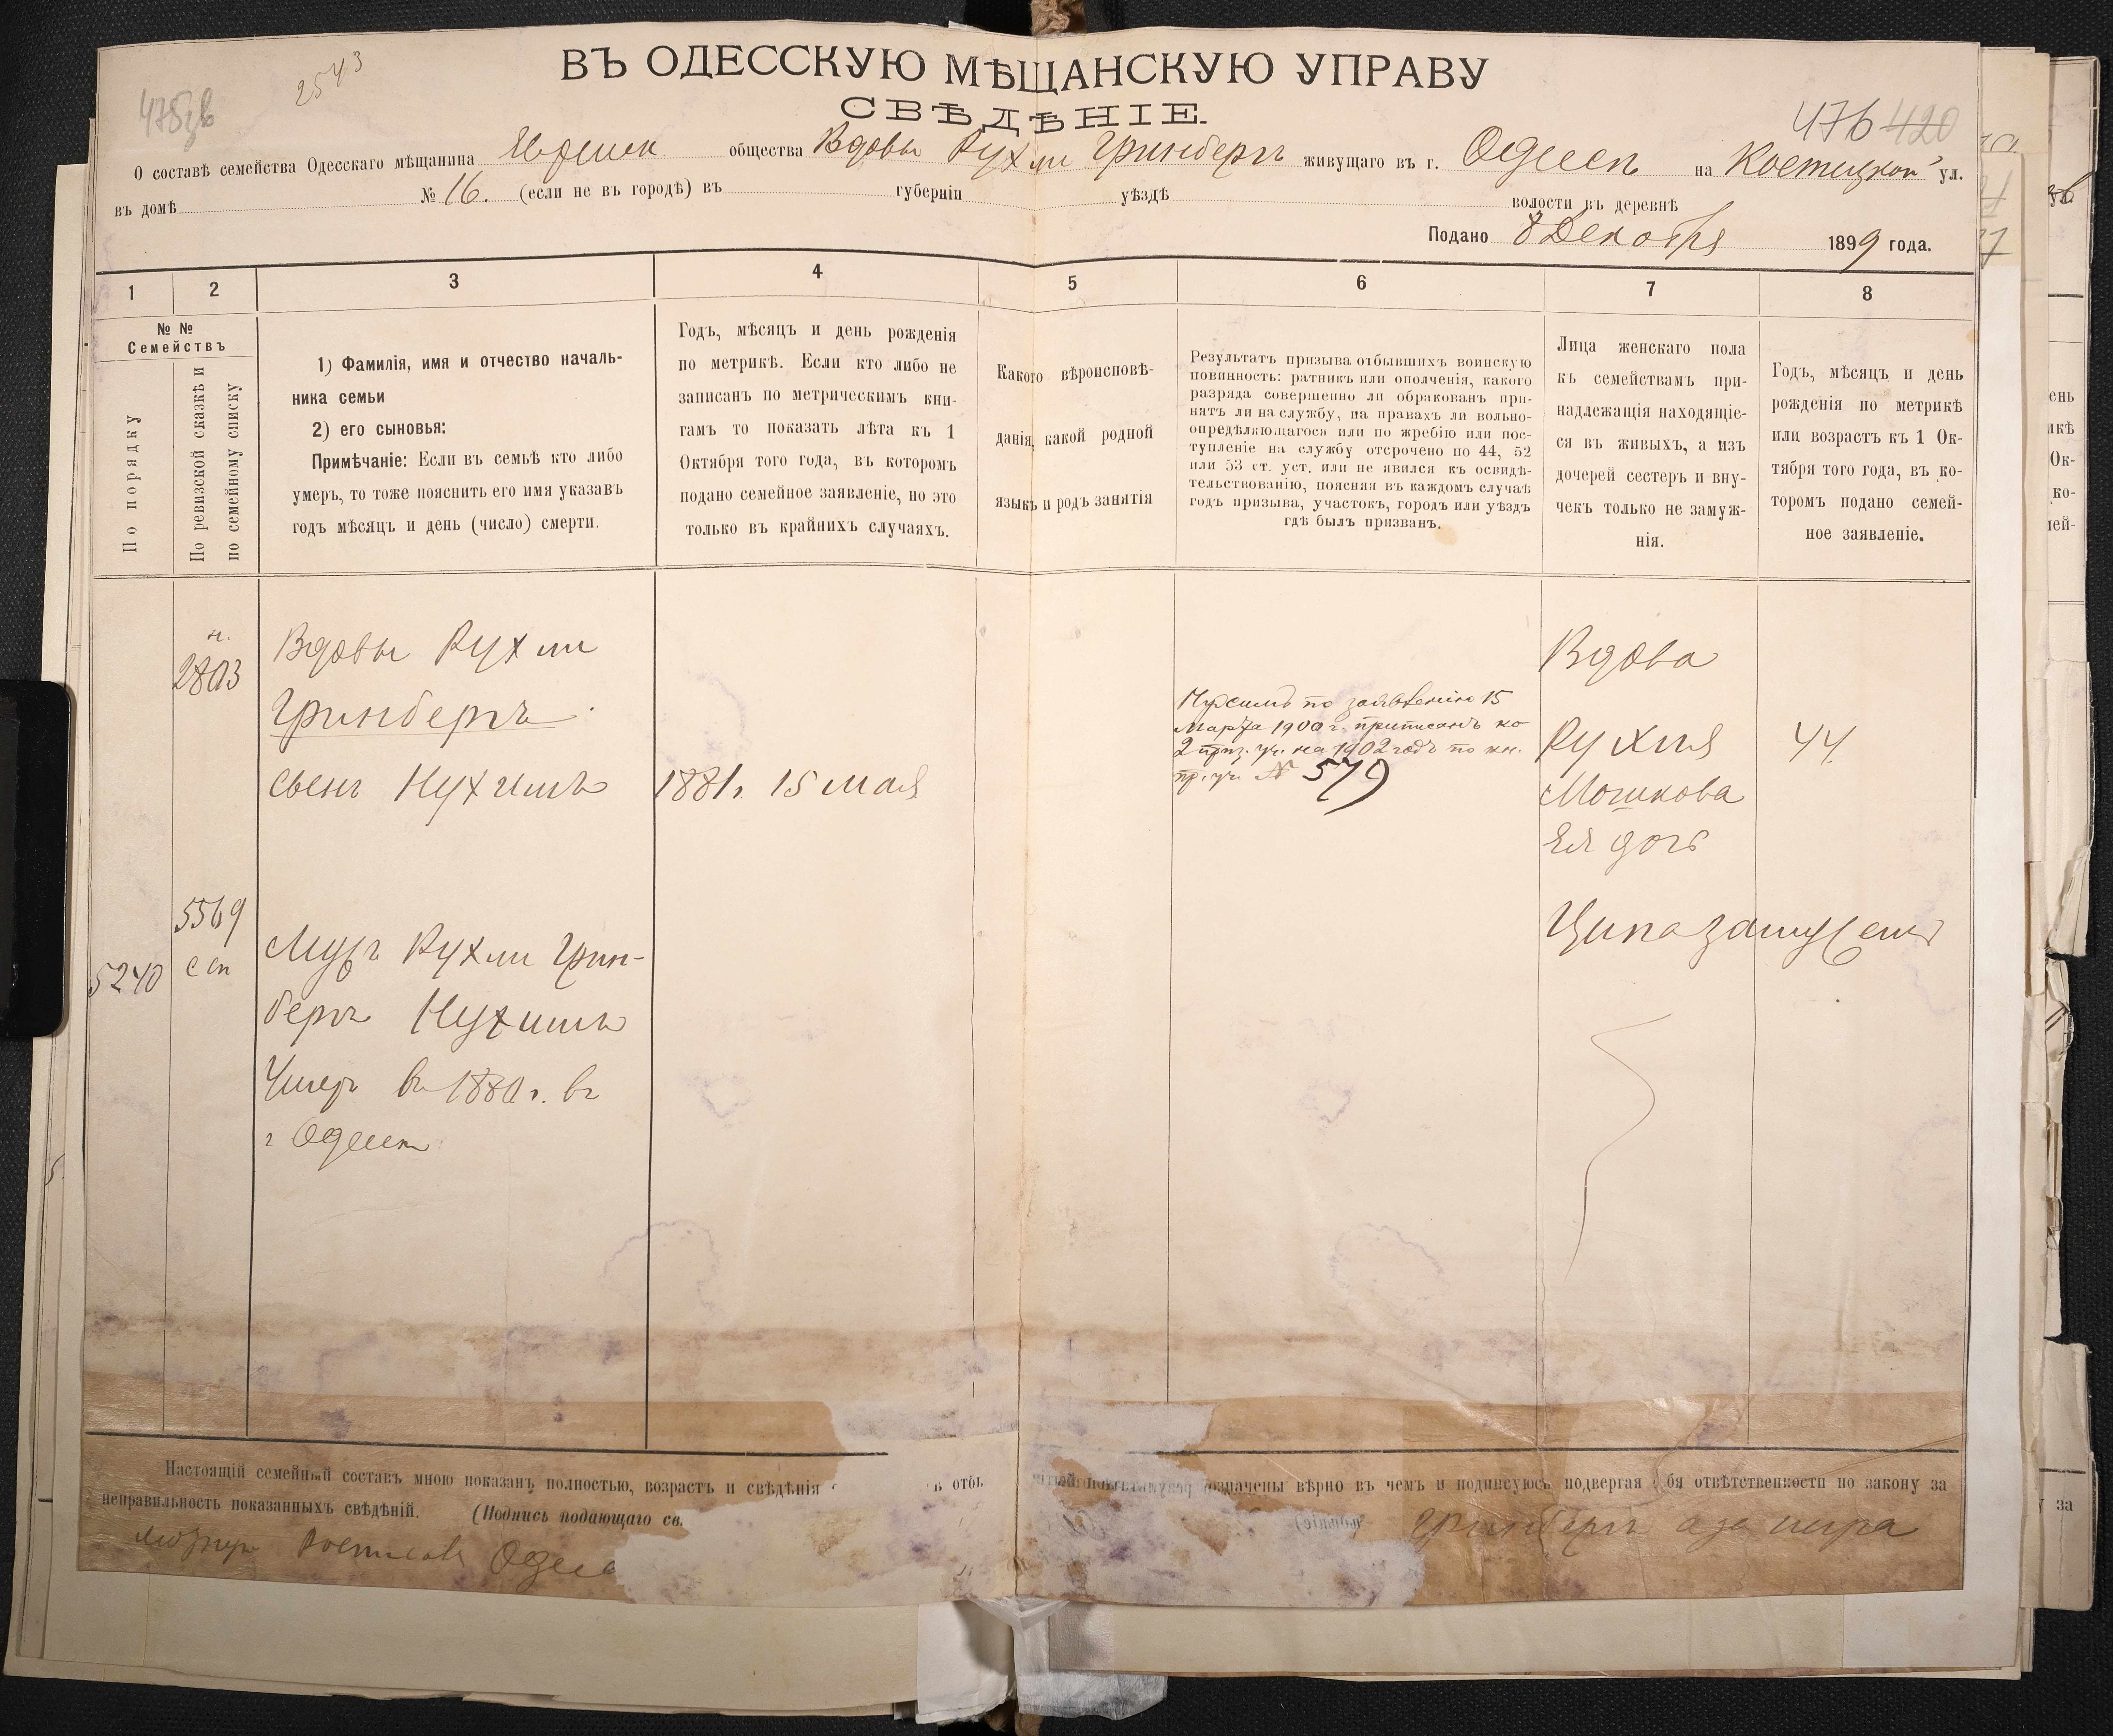 ВЪ ОДЕССКУЮ МѢЩАНСКУЮ УПРАВУ
СВѢДѢНІЕ.
2543
476 420
О составѣ семейства Одесскаго мѣщанина общества Вдовы Рухли Гринбергъ живущаго въ г. Одессѣ на Костецкой ул.
въ домѣ № 16. (если не въ городѣ) въ губерніи уѣздѣ волости въ деревнѣ
Подано 8 Декабря 1899 года.
1 2 3 4 5 6 7 8
№ №
Семействъ
По порядку
По ревизской сказкѣ и
по семейному списку
1) Фамилія, имя и отчество началь-
ника семьи
2) его сыновья:
Примѣчаніе: Если въ семьѣ кто либо
умеръ, то тоже пояснить его имя указавъ
годъ мѣсяцъ и день (число) смерти.
Годъ, мѣсяцъ и день рожденія
по метрикѣ. Если кто либо не
записанъ по метрическимъ кни-
гамъ то показать лѣта къ 1
Октября того года, въ которомъ
подано семейное заявленіе, но это
только въ крайнихъ случаяхъ.
Какого вѣроисповѣ-
данія, какой родной
языкъ и родъ занятія
Результатъ призыва отбывшихъ воинскую
повинность: ратникъ или ополченія, какого
разряда совершенно ли обракованъ при-
нятъ ли на службу, на правахъ ли вольно-
опредѣляющагося или по жребію или пос-
тупленіе на службу отсрочено по 44, 52
или 53 ст. уст. или не явился къ освидѣ-
тельствованію, поясняя въ каждомъ случаѣ
годъ призыва, участокъ, городъ или уѣздъ
гдѣ былъ призванъ.
Лица женскаго пола
къ семействамъ при-
надлежащія находящіе-
ся въ живыхъ, а изъ
дочерей сестеръ и вну-
чекъ только не замуж-
нія.
Годъ, мѣсяцъ и день
рожденія по метрикѣ
или возрастъ къ 1 Ок-
тября того года, въ ко-
торомъ подано семей-
ное заявленіе.
н.
2803
Вдовы Рухли
Гринбергъ
сынъ Нухимъ
1881г. 15 мая
Нухимъ по заявленію 15
Марта 1900 г. приписанъ ко
2 приз. уч. на 1902 годъ по кн.
пр. уч. № 579
Вдова
Рухля
44
Мошкова
Ея дочь
Ципа замужемъ
5569
5240
Мужъ Рухли Грин-
бергъ Нухимъ
Умеръ въ 1880 г. въ
г Одессѣ
Настоящій семейный составъ мною показанъ полностью, возрастъ и свѣдѣнія отбы означены вѣрно въ чемъ и подписуюсь, подвергая бя отвѣтственности по закону за
неправильность показанныхъ свѣдѣній. (Подпись подающаго св.
Гринбергъ